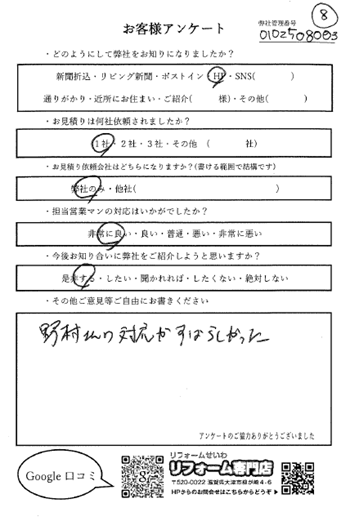 ⑧
お客様アンケート
弊社管理番号
0102508003
・どのようにして弊社をお知りになりましたか?
新聞折込・リビング新聞・ポストイン・HP・SNS( )
通りがかり・近所にお住まい・ご紹介( 様)・その他( )
・お見積りは何社依頼されましたか?
1社・2社・3社・その他 ( 社)
・お見積り依頼会社はどちらになりますか?(書ける範囲で結構です)
弊社のみ・他社( )
・担当営業マンの対応はいかがでしたか?
非常に良い・良い・普通・悪い・非常に悪い
・今後お知り合いに弊社をご紹介しようと思いますか?
是非する・したい・聞かれれば・したくない・絶対しない
・その他ご意見等ご自由にお書きください
野村さんの対応がすばらしかった
アンケートのご協力ありがとうございました
Google 口コミ
リフォームせいわ
リフォーム専門店
〒520-0022 滋賀県大津市柳が崎4-6
HPからのお問合せはこちらからどうぞ▶